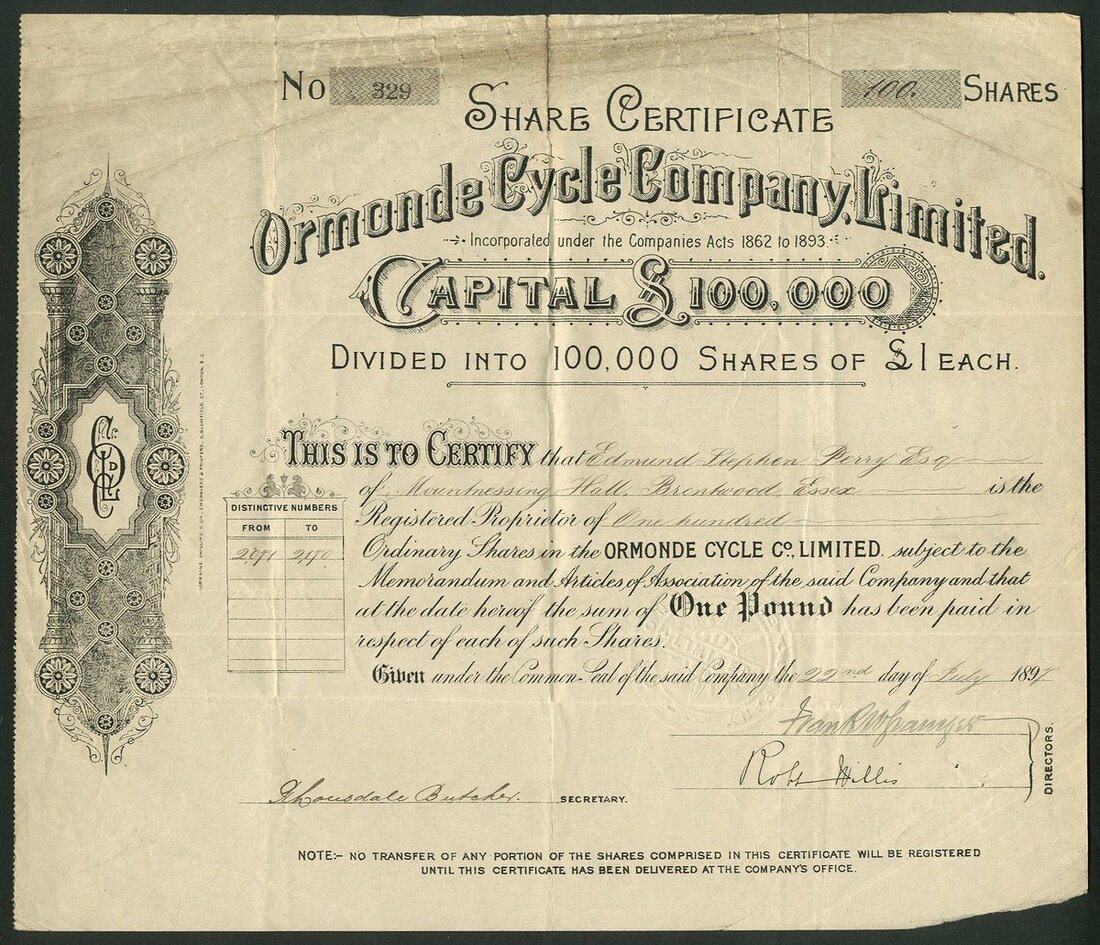 No 329
100. SHARES
SHARE CERTIFICATE
Ormonde Cycle Company, Limited.
Incorporated under the Companies Acts 1862 to 1893.
CAPITAL £100,000
DIVIDED INTO 100,000 SHARES OF £1 EACH.
THIS IS TO CERTIFY that Edmund Stephen Perry Esq
of Mountnessing Hall, Brentwood, Essex is the
Registered Proprietor of One hundred
DISTINCTIVE NUMBERS
FROM TO
Ordinary Shares in the ORMONDE CYCLE Co., LIMITED. subject to the
Memorandum and Articles of Association of the said Company and that
at the date hereof the sum of One Pound has been paid in
respect of each of such Shares.
Given under the Common Seal of the said Company the 22nd day of July 189
Robt Willis
DIRECTORS.
Lonsdale Butcher. SECRETARY.
NOTE:- NO TRANSFER OF ANY PORTION OF THE SHARES COMPRISED IN THIS CERTIFICATE WILL BE REGISTERED
UNTIL THIS CERTIFICATE HAS BEEN DELIVERED AT THE COMPANY'S OFFICE.